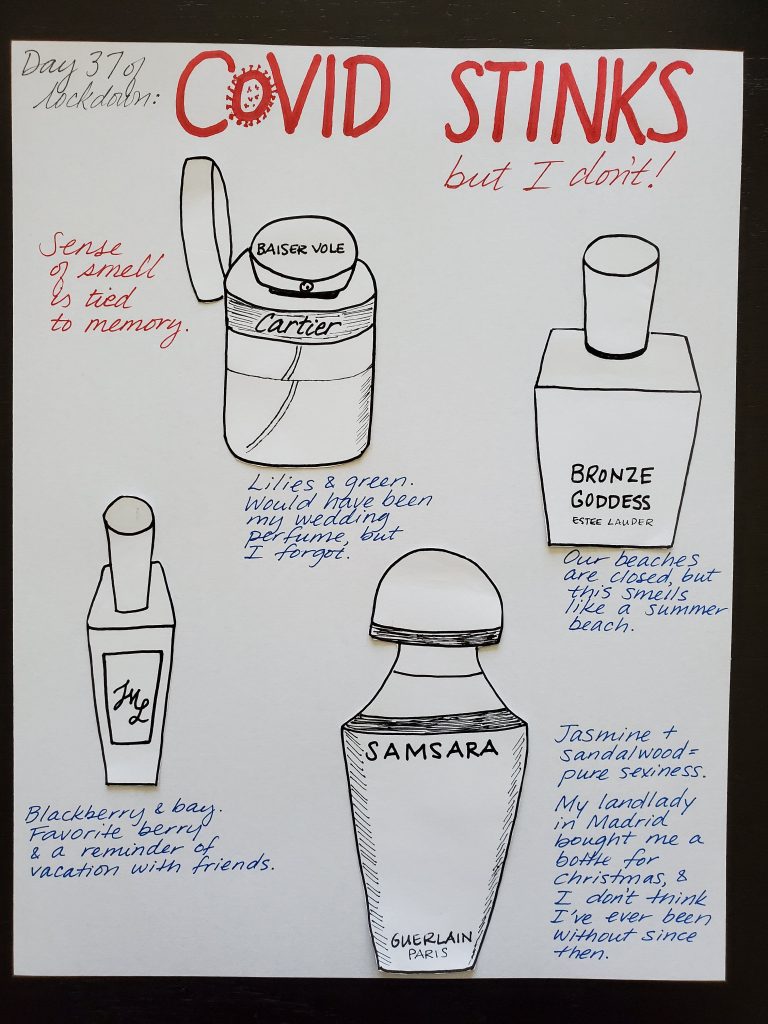 Day 37 of
lockdown:
COVID STINKS
but I don't!
Sense
of smell
is tied
to memory.
BAISER VOLE
Cartier
Lilies & green.
Would have been
my wedding
perfume, but
I forgot.
BRONZE
GODDESS
ESTEE LAUDER
Our beaches
are closed, but
this smells
like a summer
beach.
JML
Blackberry & bay.
Favorite berry
& a reminder of
vacation with friends.
SAMSARA
GUERLAIN
PARIS
Jasmine +
sandalwood=
pure sexiness.
My landlady
in Madrid
bought me a
bottle for
Christmas, &
I don't think
I've ever been
without since
then.